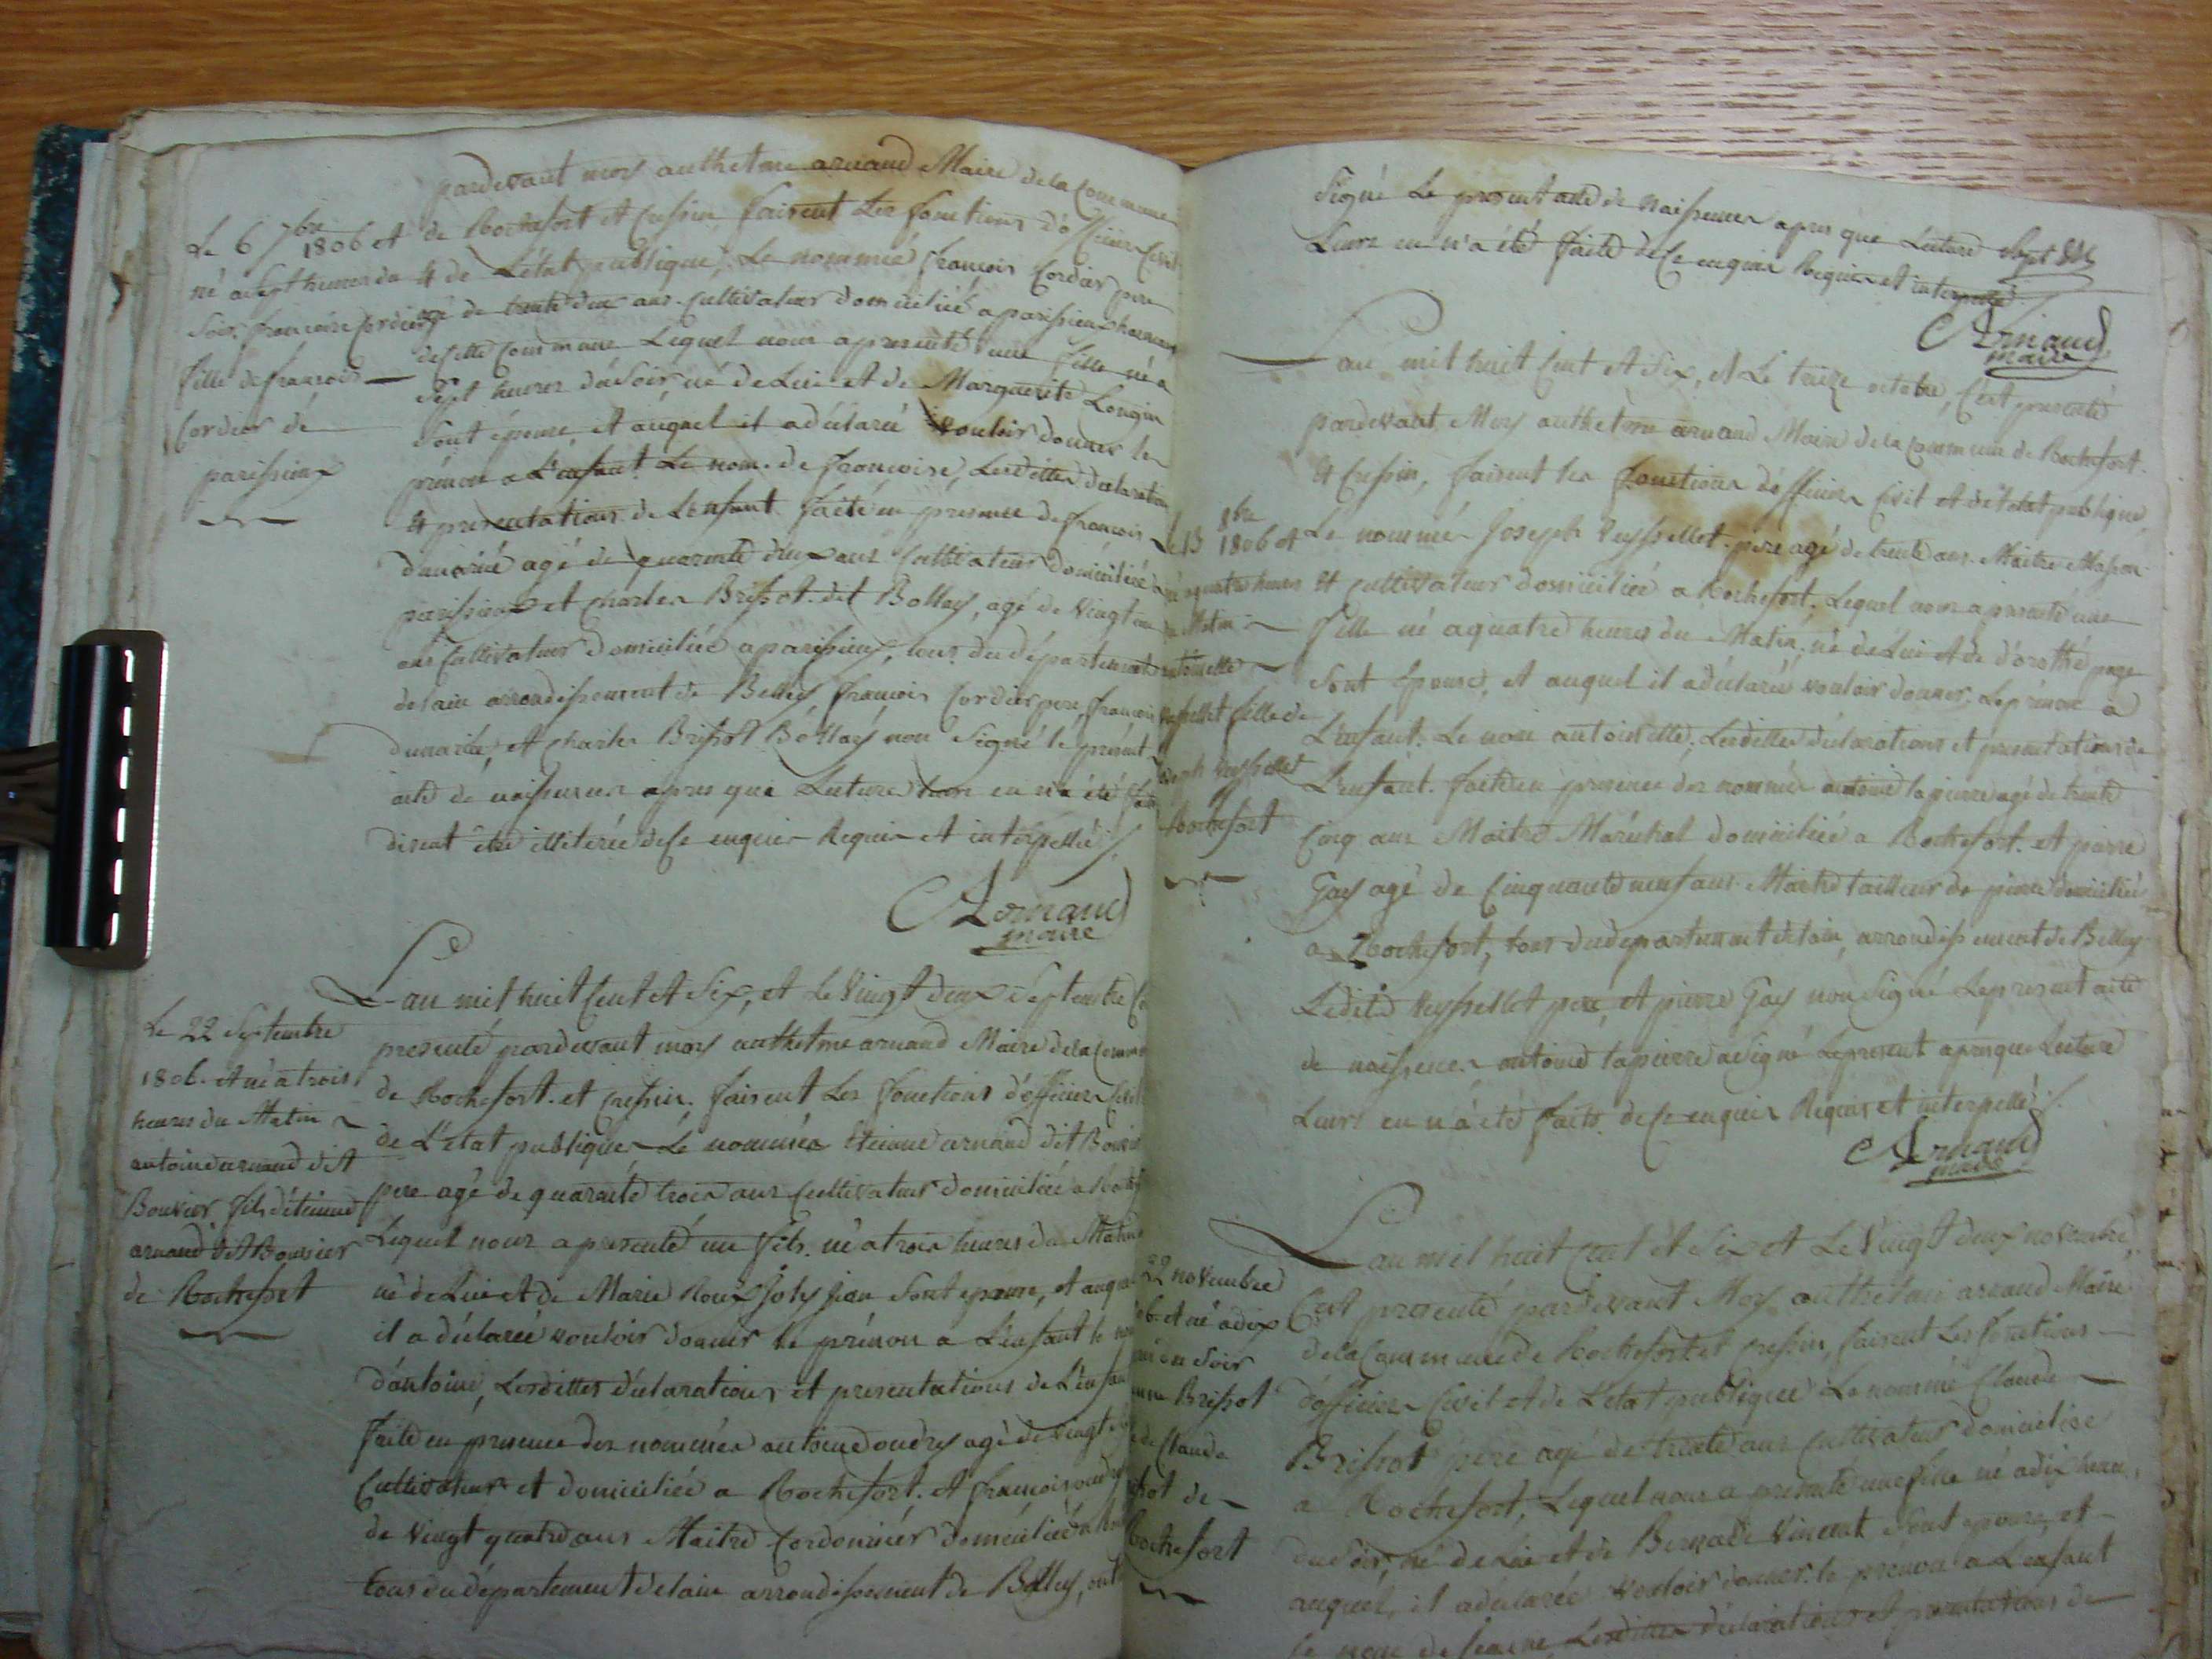 pardevant moy anthelme arnaud Maire de la Commune
de Rochefort et Cressin, faisent les fonctions d'officier Civil
et de L'état publique, Le nommée françois Cordier pere
agé de trente deux ans Cultivateur domicilié a parissieux hameau
de cette Commune Lequel nous a presenté une fille né a
Sept heures du Soir né de Lui et de Marguerite Longin
Sont épouse, et auquel il a déclaré vouloir donner le
prénom a L'enfant Le nom de françoise, Lesdittes declarations
et presentations de L'enfant faite en présence de françois
dunarié agé de quarante deux ans Cultivateur domicilié a
parissieux et Charles Brissot dit Bollay, agé de Vingt
ans Cultivateur domicilié a parissieux, tous du département
de lain arrondissement de Belley, françois Cordier pere, françois
dunarié, et Charles Brissot Bollay non Signé le présent
acte de naissence apres que Lecture Leurs en n'a été faite
disent être illiterée de Ce enquir Requir et interpellé
Arnaud
maire
Le 6 7bre
1806 et
né a Sept heures du
Soir françoise Cordier
fille de françois
Cordier de
parissieux
L'an mil huit Cent et Six, et le Vingt deux Septembre
presenté pardevant moy anthelme arnaud Maire de la Commune
de Rochefort et Cressin faisent Les fonctions d'officier Civil
de L'etat publique Le nommée Etienne arnaud dit Bouvier
pere agé de quarante trois ans Cultivateur domicilié a
Lequel nous a presenté un fils né a trois heures du Matin
né de Lui et de Marie Roux Joly Jean Sont epouse, et auquel
il a déclareé vouloir donner le prénom a L'enfant le nom
d'antoine, Lesdittes déclarations et presentations de L'enfant
faite en presence des nommées antoine oudry agé de Vingt
Cultivateur et domicilié a Rochefort et françois oudry
de Vingt quatre ans Maitre Cordonnier domicilié a
tous du département de lain arrondissement de Belley, ont
Le 22 Septembre
1806 et né a trois
heures du Matin
antoine arnaud dit
Bouvier fils d'étienne
arnaud dit Bouvier
de Rochefort
Signé Le present acte de naissence apres que Lecture
Leurs en n'a été faite de Ce enquir Requir et interpellé
Arnaud
maire
L'an mil huit Cent et Six, et Le treize octobre, C'est presenté
pardevant Moy anthelme arnaud Maire de la Commune de Rochefort
et Cressin, faisent les fonctions d'officier Civil et de L'état publique,
Le nommée Joseph Veyssellet pere agé de trente ans Maitre Masson
et Cultivateur domicilié a Rochefort, Lequel nous a presenté une
fille né a quatre heures du Matin, né de Lui et de d'orothé page
Sont épouse, et auquel il a déclaré vouloir donner Le prénom a
L'enfant Le nom antoinette, Lesdittes déclarations et presentations de
L'enfant faite en presence des nommée antoine lapierre agé de trente
Cinq ans Maitre Maréchal domicilié a Rochefort et pierre
Gay agé de Cinquante neuf ans Maitre tailleur de pierre domicilié
a Rochefort, tous du departement de lain, arrondissement de Belley
Ledite Veyssellet pere, et pierre Gay non Signé Le present acte
de naissence antoine lapierre a Signé Le present apres que Lecture
Leurs en n'a été faite de Ce enquir Requir et interpellé
Arnaud
maire
13 8bre
1806 et
né a quatre heures
du Matin
antoinette
Veyssellet fille de
Joseph Veyssellet
Rochefort
L'an mil huit Cent et Six et Le Vingt deux novembre,
C'est presenté pardevant Moy anthelme arnaud Maire
de la Commune de Rochefort et Cressin, faisent Les fonctions
d'officier Civil et de L'etat publique Le nommé Claude
Brissot père agé de trente ans Cultivateur domicilié
a Rochefort, Lequel nous a presenté une fille né a dix heures
du Soir, né de Lui et de Bernade Vincent Sont epouse, et
auquel, il a déclaré vouloir donner le prénom a L'enfant
le nom de Jeanne Lesdittes déclarations et presentations de
22 novembre
et né a dix
du Soir
Brissot
de Claude
de
Rochefort